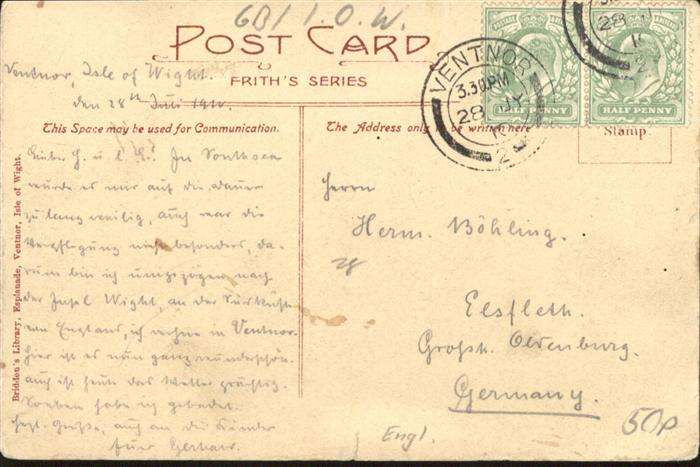 GB/I.O.W.
POST CARD
FRITH'S SERIES
VENTNOR
3.30 PM
28
2
HALF PENNY
HALF PENNY
28
Stamp.
Ventnor, Isle of Wight.
den 28th Juli 1910.
This Space may be used for Communication.
The Address only to be written here
Bridden's Library, Esplanade, Ventnor, Isle of Wight.
Liebe G. u. L. In Southsea
wurde es mir auf die Dauer
zu langweilig, auch war die
Verpflegung nicht besonders, da-
rum bin ich umgezogen nach
der Insel Wight, an der Südküste
von England, ich wohne in Ventnor.
Hier ist es nun ganz wunderschön.
auch ist heute das Wetter prächtig.
Soeben habe ich gebadet.
Herzl. Grüße, auch an die Kinder
Euer
Herrn
Herm. Böhling.
Elsfleth.
Großh. Oldenburg.
Germany.
Engl.
50p